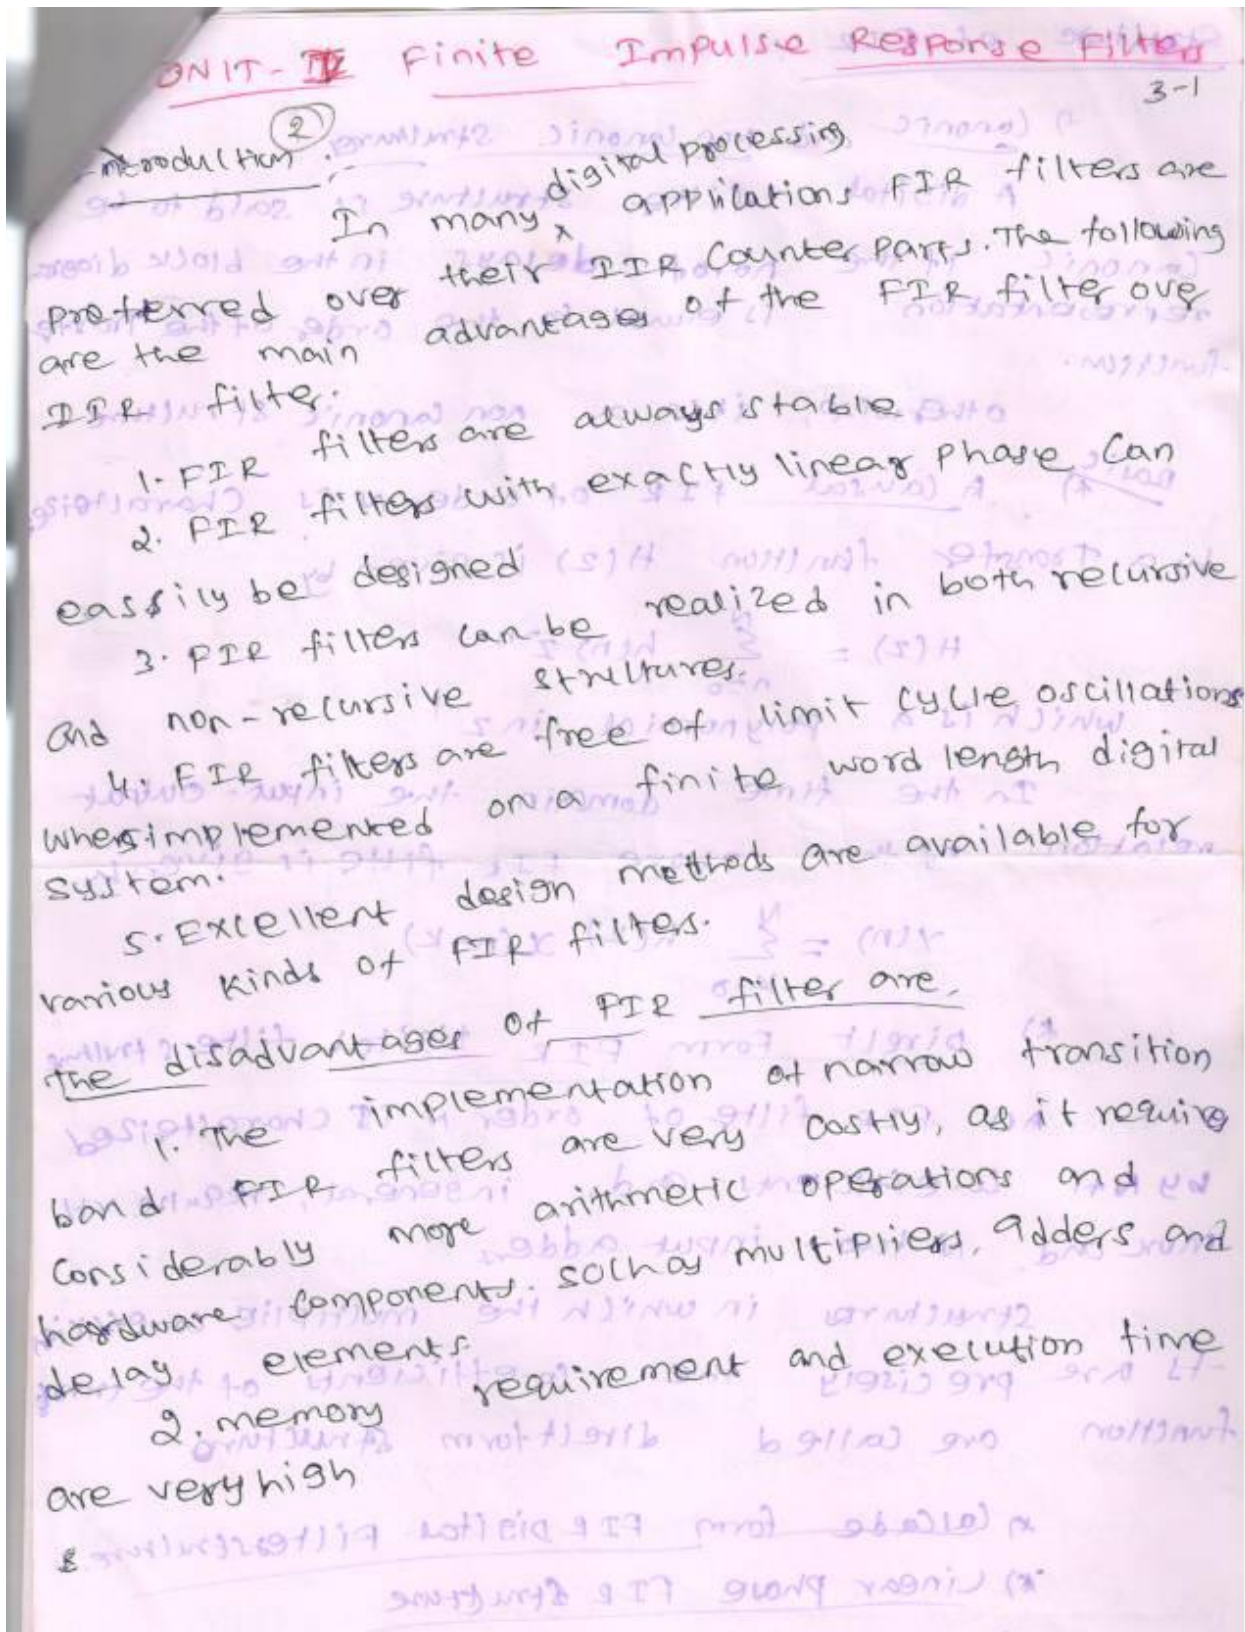 UNIT-II Finite Impulse Response Filters
3-1
2
Introduction :-
In many digital processing applications FIR filters are
preferred over their IIR Counter parts. The following
are the main advantages of the FIR filter over
IIR filter.
1. FIR filters are always stable
2. FIR filters with exactly linear phase can
eassily be designed
3. FIR filters can be realized in both recursive
and non-recursive structures.
4. FIR filters are free of limit cycle oscillations
when implemented on a finite word length digital
system.
5. Excellent design methods are available for
various kinds of FIR filters.
The disadvantages of FIR filter are.
1. The implementation of narrow transition
band FIR filters are very costly, as it require
considerably more arithmetic operations and
hardware components. Such as multipliers, adders and
delay elements.
2. memory requirement and execution time
are very high